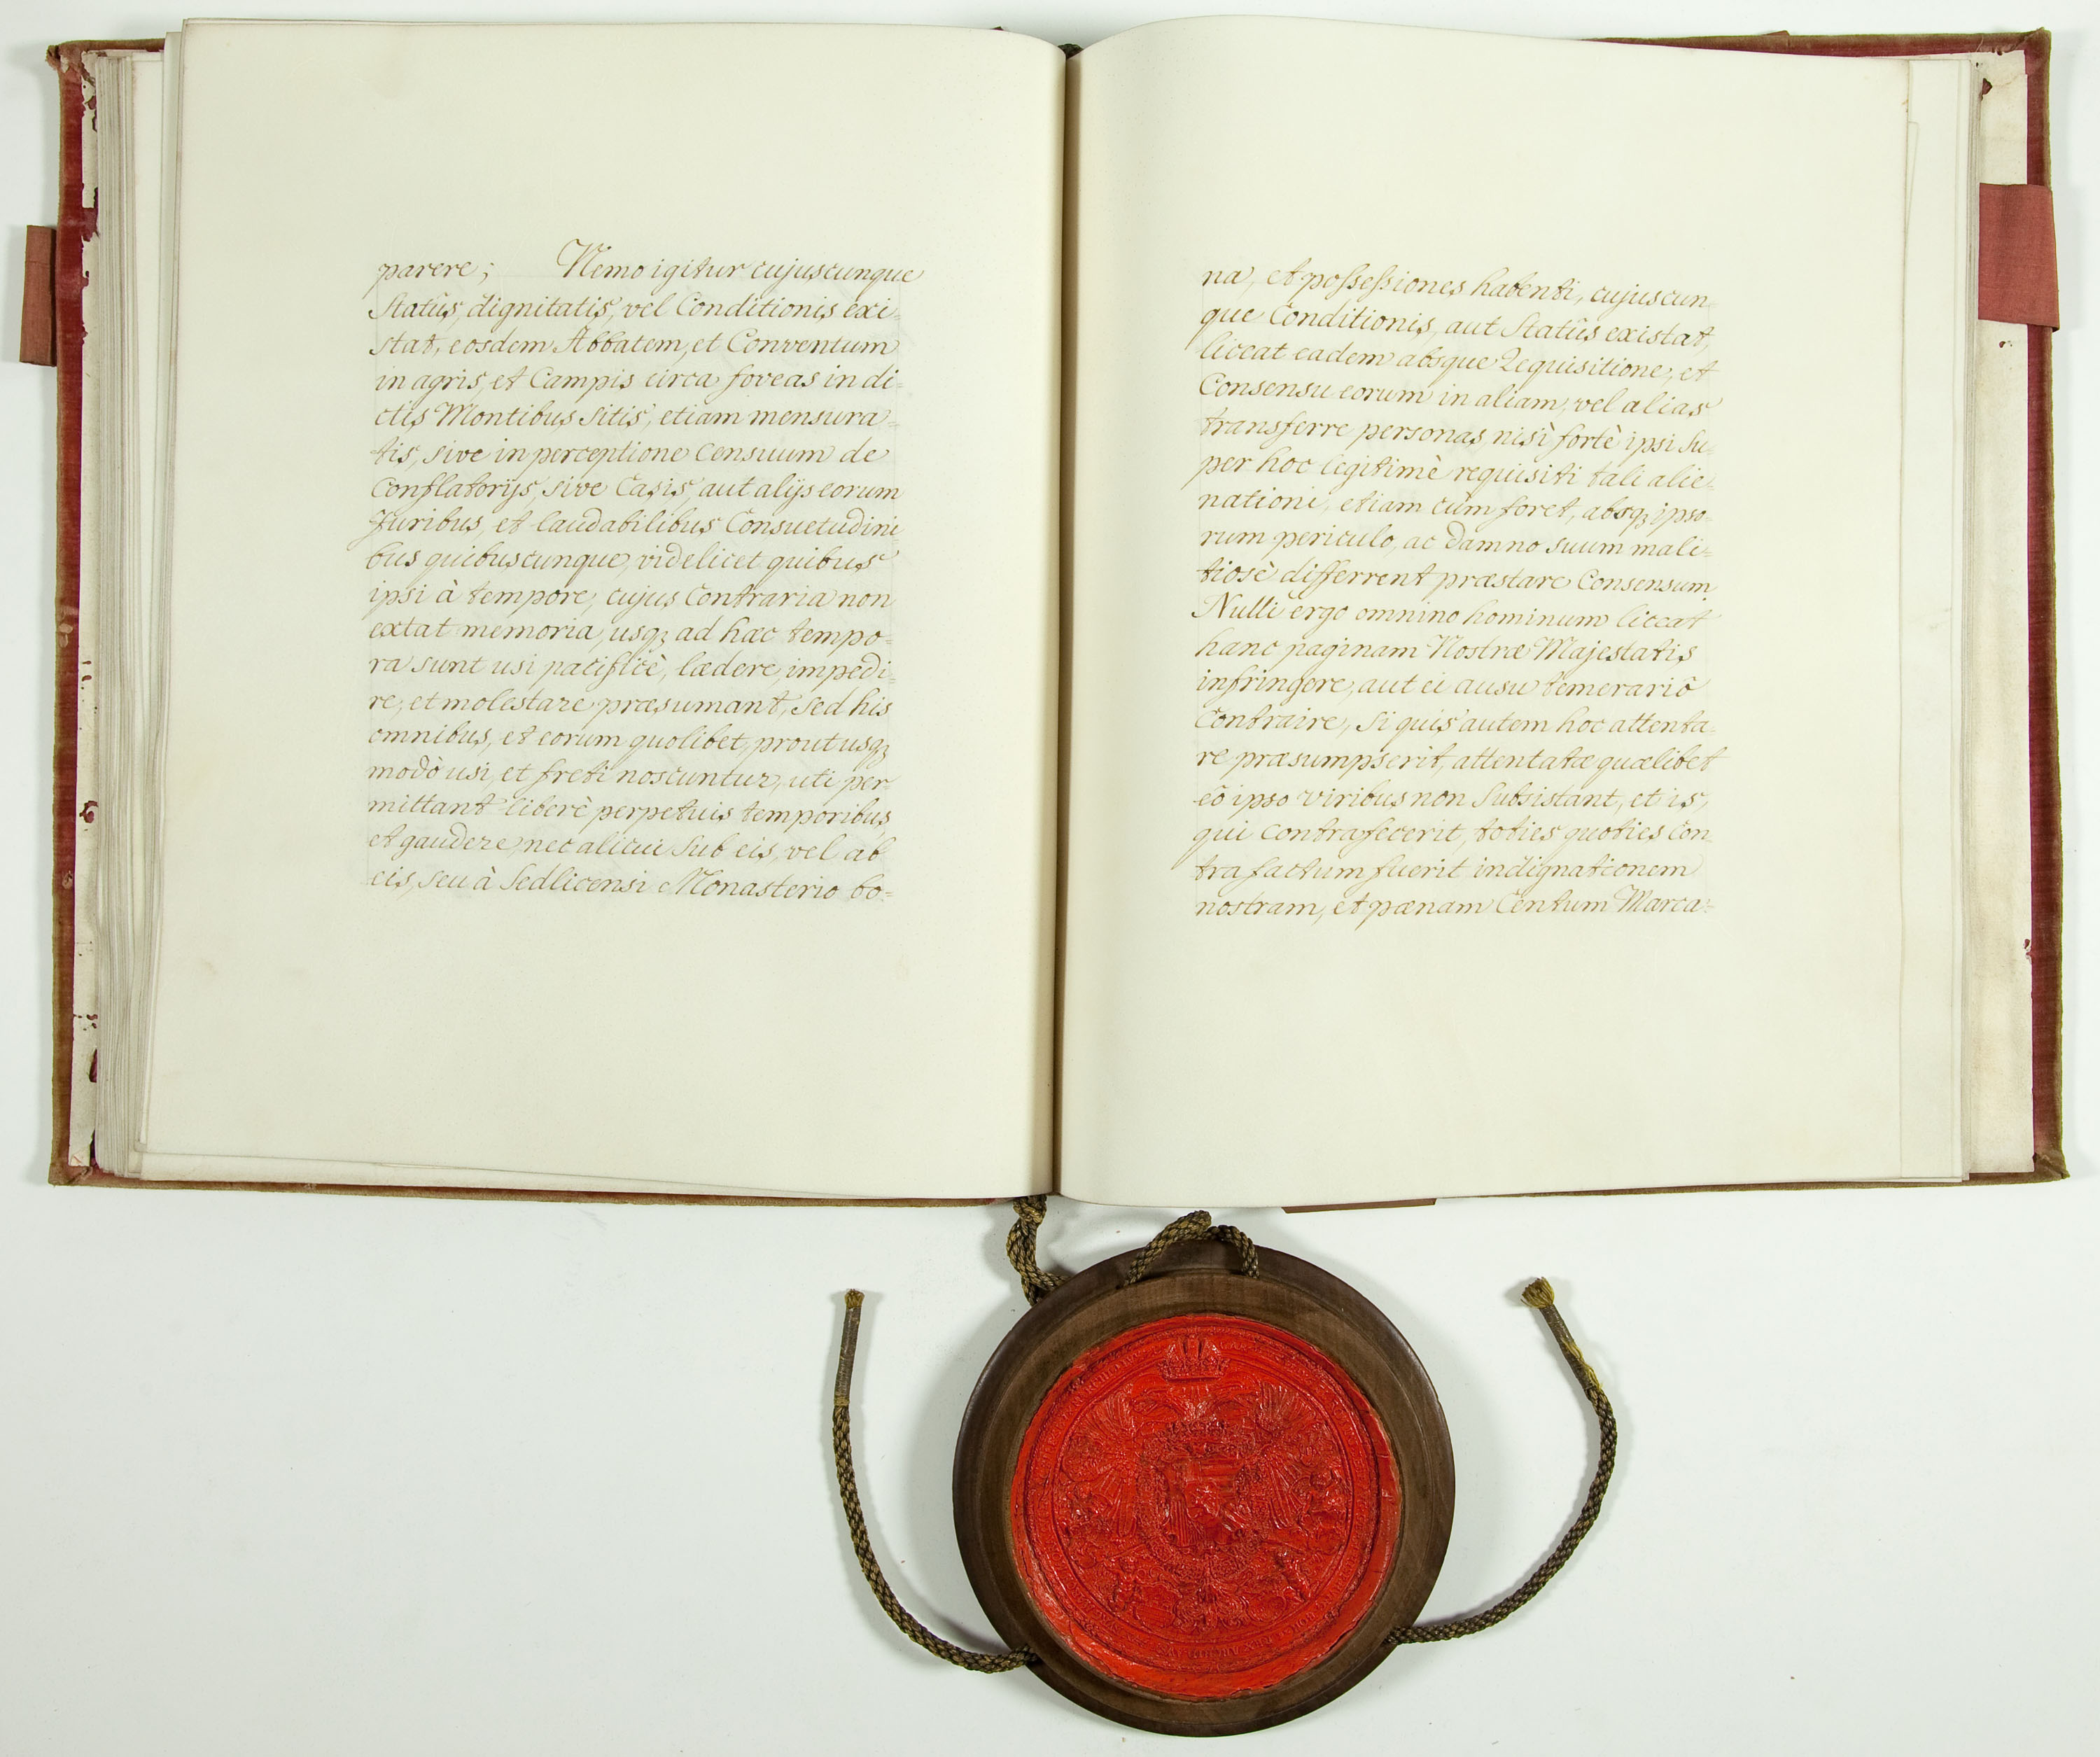 parere; Nemo igitur cujuscunque
Statûs, dignitatis, vel Conditionis exi=
stat, eosdem Abbatem, et Conventum
in agris, et Campis circa foveas in di=
ctis Montibus Sitis, etiam mensura=
tis, sive in perceptione Censuum de
Conflatorijs, sive Casis, aut alijs eorum
Juribus, et laudabilibus Consuetudini
bus quibuscunque, videlicet quibus
ipsi à tempore, cujus Contraria non
extat memoria, usqz ad hæc tempo=
ra sunt usi pacificè, lædere, impedi=
re, et molestare præsumant, Sed his
omnibus, et eorum quolibet, prout usqz
modò usi, et freti noscuntur, uti per=
mittant liberè perpetuis temporibus
et gaudere, nec alicui Sub eis, vel ab
eis, seu à Sedlicensi Monasterio bo=
na, et possessiones habenti, cujuscun
que Conditionis, aut Statûs existat,
liceat eadem absque Requisitione, et
Consensu eorum in aliam, vel alias
transferre personas, nisi fortè ipsi Su=
per hoc legitimè requisiti tali alie=
nationi, etiam cùm foret, absqz ipso=
rum periculo, ac damno suum mali=
tiosè differrent præstare Consensum
Nulli ergo omnino hominum liceat
hanc paginam Nostræ Majestatis
infringere, aut ei ausu temerariô
Contraire, Si quis autem hoc attenta=
re præsumpserit, attentatæ quælibet
eô ipso viribus non Subsistant, et is,
qui contrafecerit, toties quoties Con=
tra factum fuerit indignationem
nostram, et pænam Centum Marca=